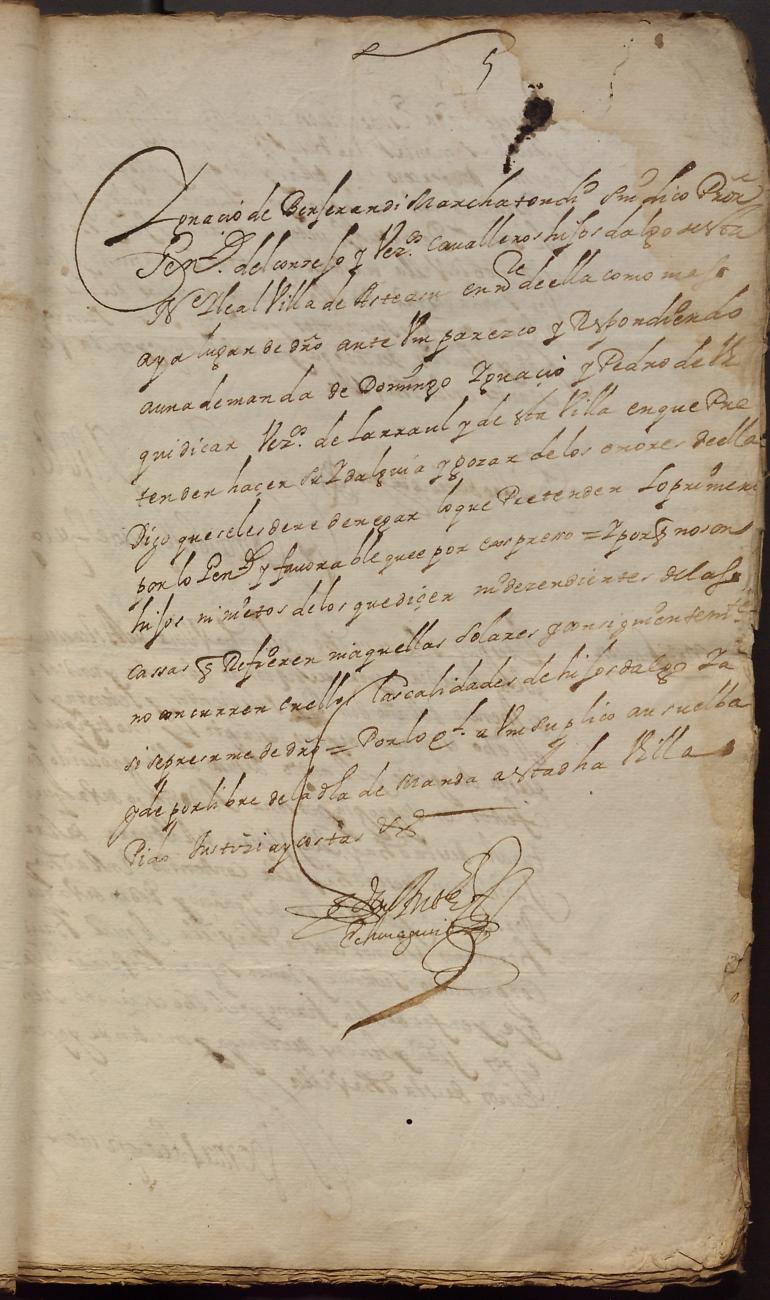 5
Ygnacio de Berserandi Marchatondo Sindico Pror
Genl. del conzejo y Vezos. Cavalleros hijos dalgo de esta
Ne Leal Villa de Asteasu en nre de ella como mas
aya lugar de dro ante Vm parezco y Respondiendo
a una demanda de Domingo Ygnacio y Pedro de
quidicar Vezos. de Larraul y de sta Villa en que Pre
tenden hacer su Ydalguia y gozar de los onores de ella
Digo que se les deve denegar lo que Pretenden Lo primero
por lo Genl y favorable que e por expreso = Y por q no son
hijos ni nietos de los que diçen ni dezendientes de las
cassas q Refieren ni aquellas Solares y consiguientemte
no concurren en ellos las calidades de hijos dalgo Ya
si se presume de dro = Por lo ql. a Vm suplico ausuelba
y de por libre de la dha demanda a esta dha Villa
Pido Justizia y costas &a
Echinaguia